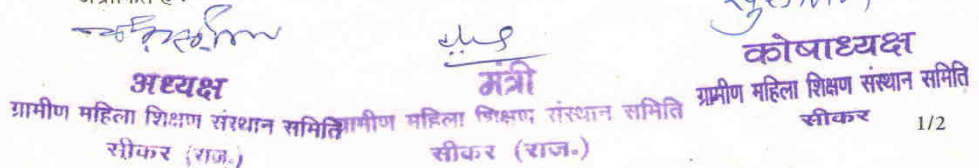 अध्यक्ष
ग्रामीण महिला शिक्षण संस्थान समिति
सीकर (राज.)
मंत्री
ग्रामीण महिला शिक्षण संस्थान समिति
सीकर (राज.)
कोषाध्यक्ष
ग्रामीण महिला शिक्षण संस्थान समिति
सीकर
1/2